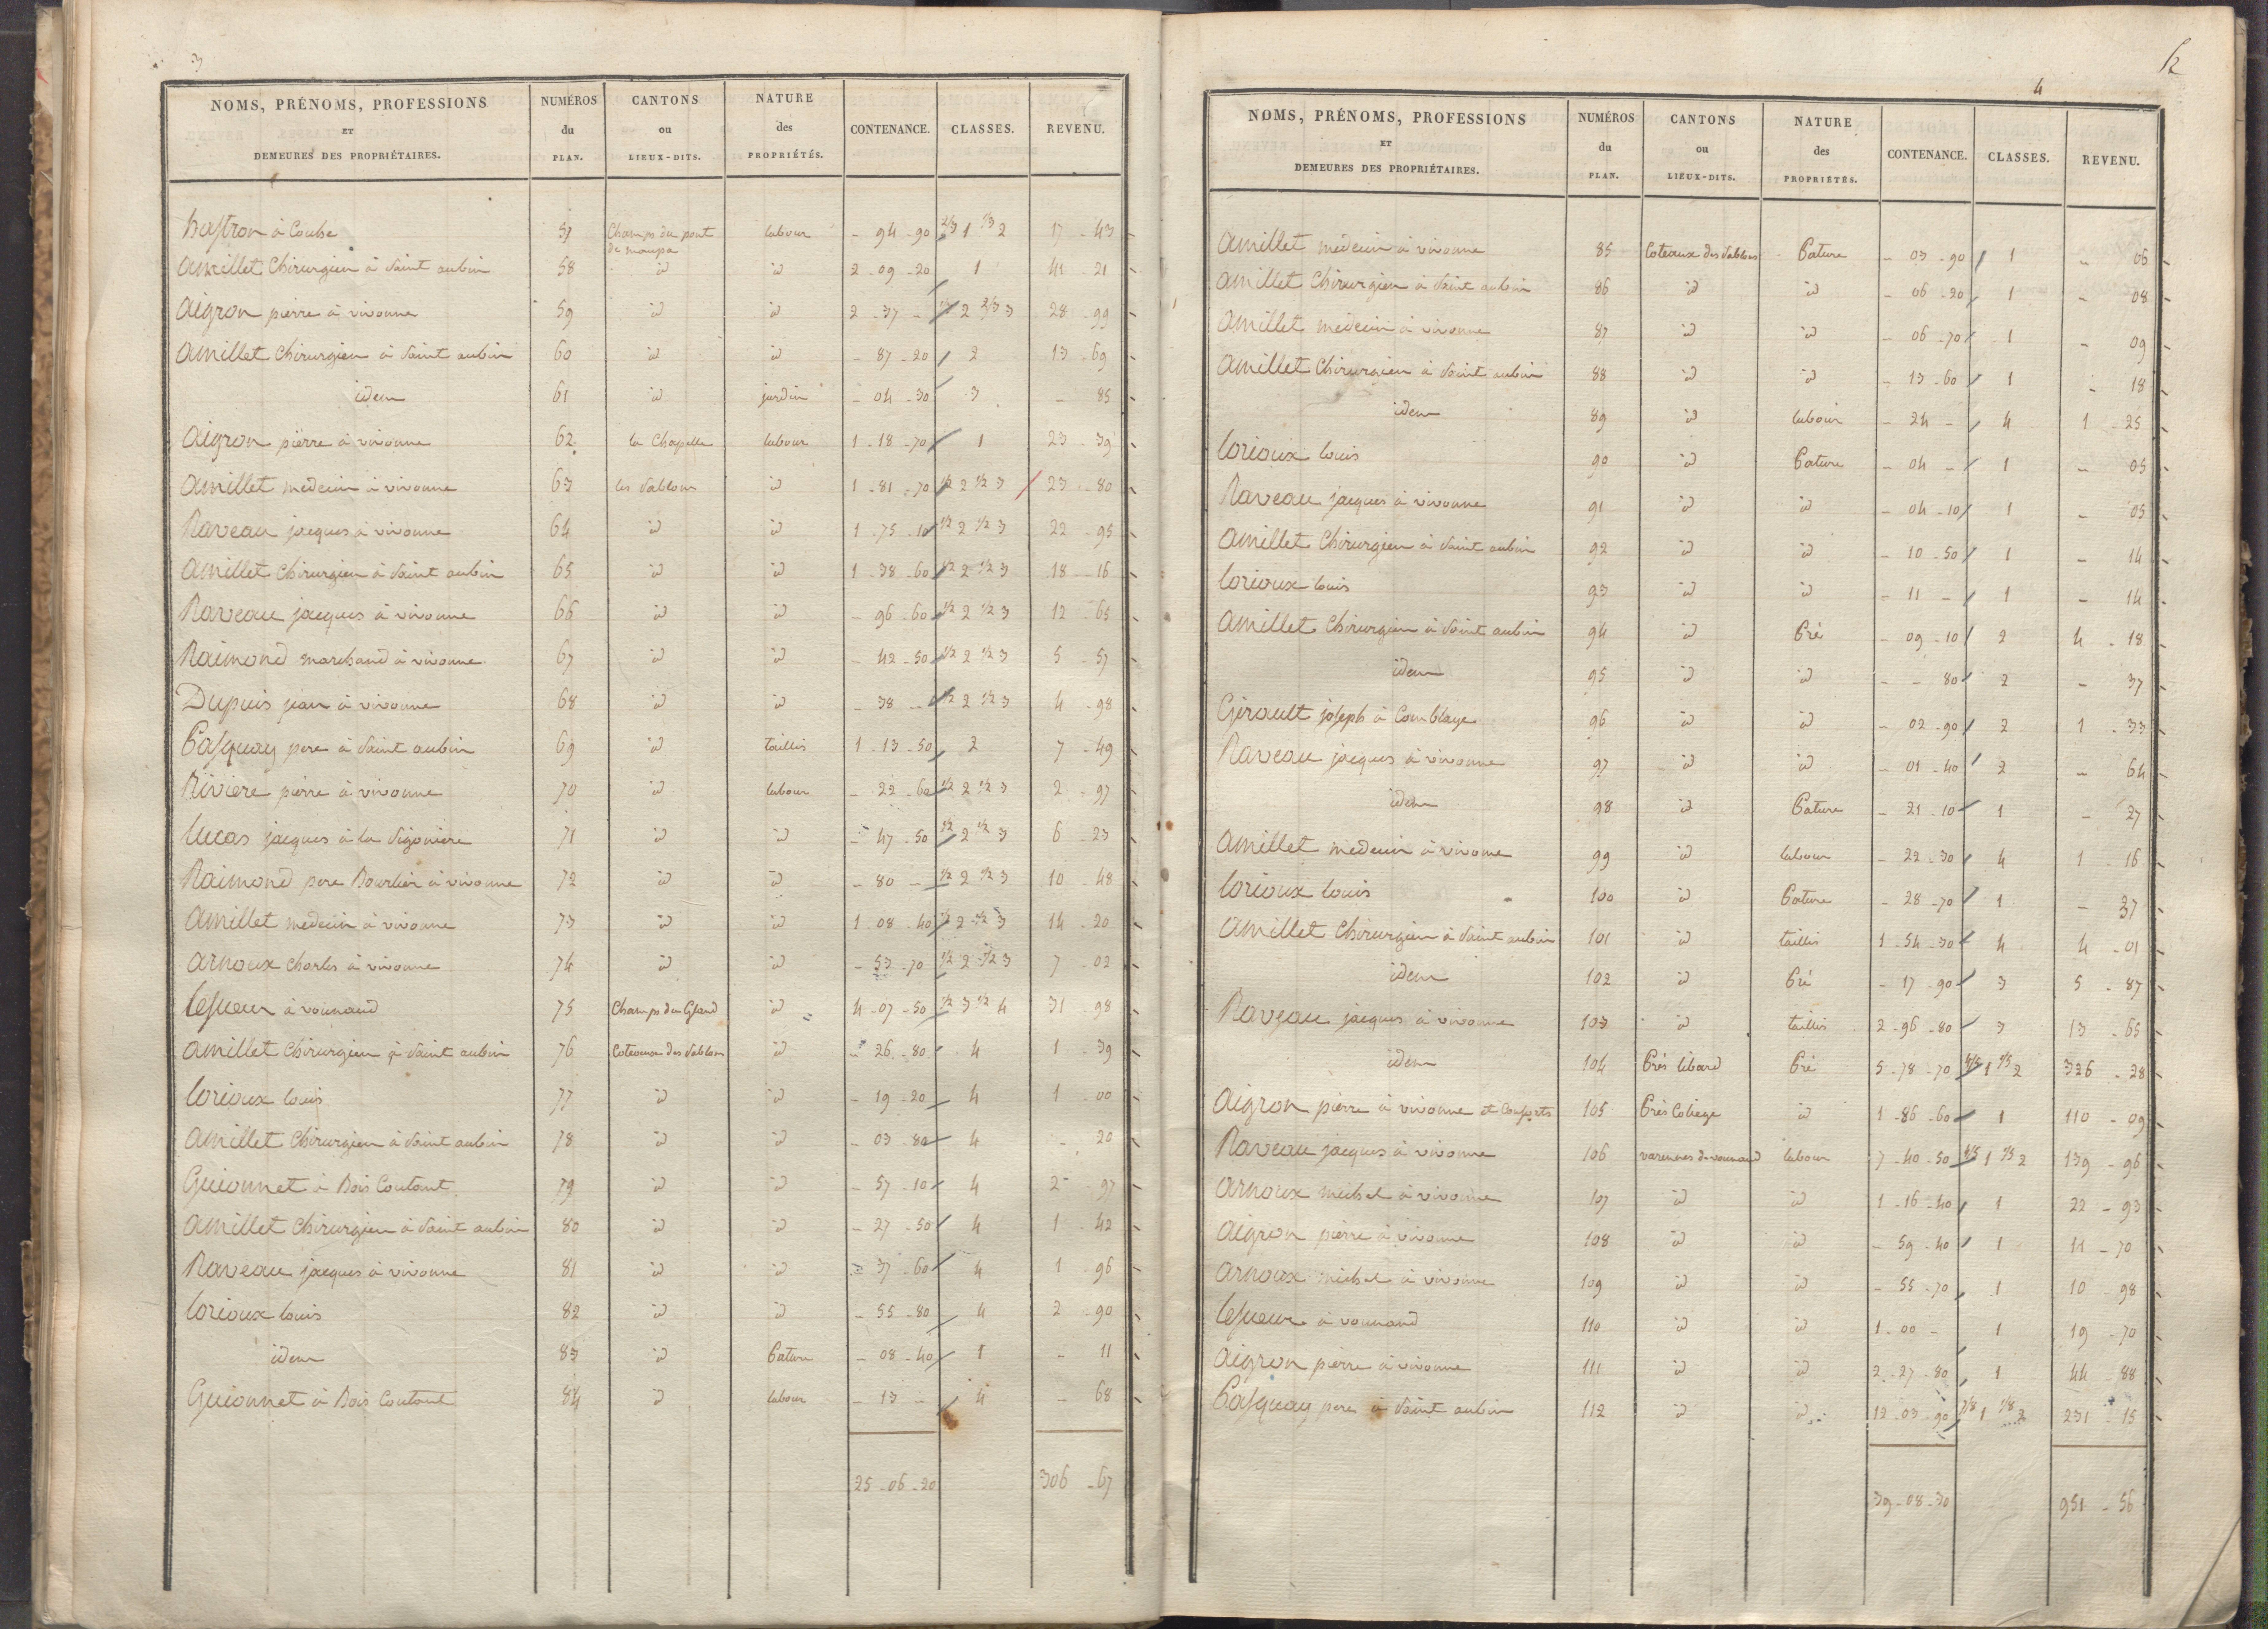 3
NOMS, PRÉNOMS, PROFESSIONS ET DEMEURES DES PROPRIÉTAIRES. NUMÉROS du PLAN. CANTONS ou LIEUX-DITS. NATURE des PROPRIÉTÉS. CONTENANCE. CLASSES. REVENU.
à Couhe 57 Champs du pont de maupa labour - 94 - 90 2/3 1 1/3 2 17 - 43
Amillet Chirurgien à Saint aubin 58 id id 2 - 09 - 20 1 41 - 21
Aigron pierre à vivonne 59 id id 2 - 37 - 1/3 2 2/3 3 28 - 99
Amillet Chirurgien à Saint aubin 60 id id - 87 - 20 2 13 - 69
idem 61 id jardin - 04 - 30 3 - 85
Aigron pierre à vivonne 62 la Chapelle labour 1 - 18 - 70 1 23 - 39
Amillet medecin à vivonne 63 les Sablons id 1 - 81 - 70 1/2 2 1/2 3 23 - 80
Raveau jacques à vivonne 64 id id 1 - 75 - 10 1/2 2 1/2 3 22 - 95
Amillet Chirurgien à Saint aubin 65 id id 1 - 38 - 60 1/2 2 1/2 3 18 - 16
Raveau jacques à vivonne 66 id id - 96 - 60 1/2 2 1/2 3 12 - 65
Raimond marchand à vivonne 67 id id - 42 - 50 1/2 2 1/2 3 5 - 57
Dupuis jean à vivonne 68 id id - 38 - 1/2 2 1/2 3 4 - 98
Pasquay pere à Saint aubin 69 id taillis 1 - 13 - 50 2 7 - 49
Riviere pierre à vivonne 70 id labour - 22 - 60 1/2 2 1/2 3 2 - 97
Lucas jacques à la Sigoniere 71 id id - 47 - 50 1/2 2 1/2 3 6 - 23
Raimond pere Bourlier à vivonne 72 id id - 80 - 1/2 2 1/2 3 10 - 48
Amillet medecin à vivonne 73 id id 1 - 08 - 40 1/2 2 1/2 3 14 - 20
Arnoux Charles à vivonne 74 id id - 53 - 70 1/2 2 1/2 3 7 - 02
Lesueur à vounand 75 Champs du Gland id 4 - 07 - 50 1/2 3 1/2 4 31 - 98
Amillet Chirurgien à Saint aubin 76 Coteaux des Sablons id - 26 - 80 4 1 - 39
Lorioux louis 77 id id - 19 - 20 4 1 - 00
Amillet Chirurgien à Saint aubin 78 id id - 03 - 80 4 - 20
Guionnet à Bois Coutant 79 id id - 57 - 10 4 2 - 97
Amillet Chirurgien à Saint aubin 80 id id - 27 - 50 4 1 - 42
Raveau jacques à vivonne 81 id id - 37 - 60 4 1 - 96
Lorioux louis 82 id id - 55 - 80 4 2 - 90
idem 83 id Pature - 08 - 40 1 - 11
Guionnet à Bois Coutant 84 id labour - 13 - 4 - 68
25 - 06 - 20 306 - 67
4
NOMS, PRÉNOMS, PROFESSIONS ET DEMEURES DES PROPRIÉTAIRES. NUMÉROS du PLAN. CANTONS ou LIEUX-DITS. NATURE des PROPRIÉTÉS. CONTENANCE. CLASSES. REVENU.
Amillet médecin à vivonne 85 Coteaux des Sablons Pature - 03 - 90 1 - 06
Amillet Chirurgien à Saint aubin 86 id id - 06 - 20 1 - 08
Amillet medecin à vivonne 87 id id - 06 - 70 1 - 09
Amillet Chirurgien à Saint aubin 88 id id - 13 - 60 1 - 18
idem 89 id labour - 24 - 4 1 - 25
Lorioux louis 90 id Pature - 04 - 1 - 05
Raveau jacques à vivonne 91 id id - 04 - 10 1 - 05
Amillet Chirurgien à Saint aubin 92 id id - 10 - 50 1 - 14
Lorioux louis 93 id id - 11 - 1 - 14
Amillet Chirurgien à Saint aubin 94 id Pré - 09 - 10 2 4 - 18
idem 95 id id - - 80 2 - 37
Girault joseph à Comblaye 96 id id - 02 - 90 2 1 - 33
Raveau jacques à vivonne 97 id id - 01 - 40 2 - 64
idem 98 id Pature - 21 - 10 1 - 27
Amillet medecin à vivonne 99 id labour - 22 - 30 4 1 - 16
Lorioux louis 100 id Pature - 28 - 70 1 - 37
Amillet Chirurgien à Saint aubin 101 id taillis 1 - 54 - 30 4 4 - 01
idem 102 id Pré - 17 - 90 3 5 - 87
Raveau jacques à vivonne 103 id taillis 2 - 96 - 80 3 13 - 65
idem 104 Prés libard Pré 5 - 78 - 70 4/5 1 1/5 2 326 - 28
Aigron pierre à vivonne et Consorts 105 Prés Coliege id 1 - 86 - 60 1 110 - 09
Raveau jacques à vivonne 106 varennes de vounand labour 7 - 40 - 50 4/5 1 1/5 2 139 - 96
Arnoux michel à vivonne 107 id id 1 - 16 - 40 1 22 - 93
Aigron pierre à vivonne 108 id id - 59 - 40 1 11 - 70
Arnoux michel à vivonne 109 id id - 55 - 70 1 10 - 98
Lesueur à vounand 110 id id 1 - 00 - 1 19 - 70
Aigron pierre à vivonne 111 id id 2 - 27 - 80 1 44 - 88
Pasquay pere à Saint aubin 112 id id 12 - 03 - 90 7/8 1 1/8 2 231 - 15
39 - 08 - 30 951 - 56